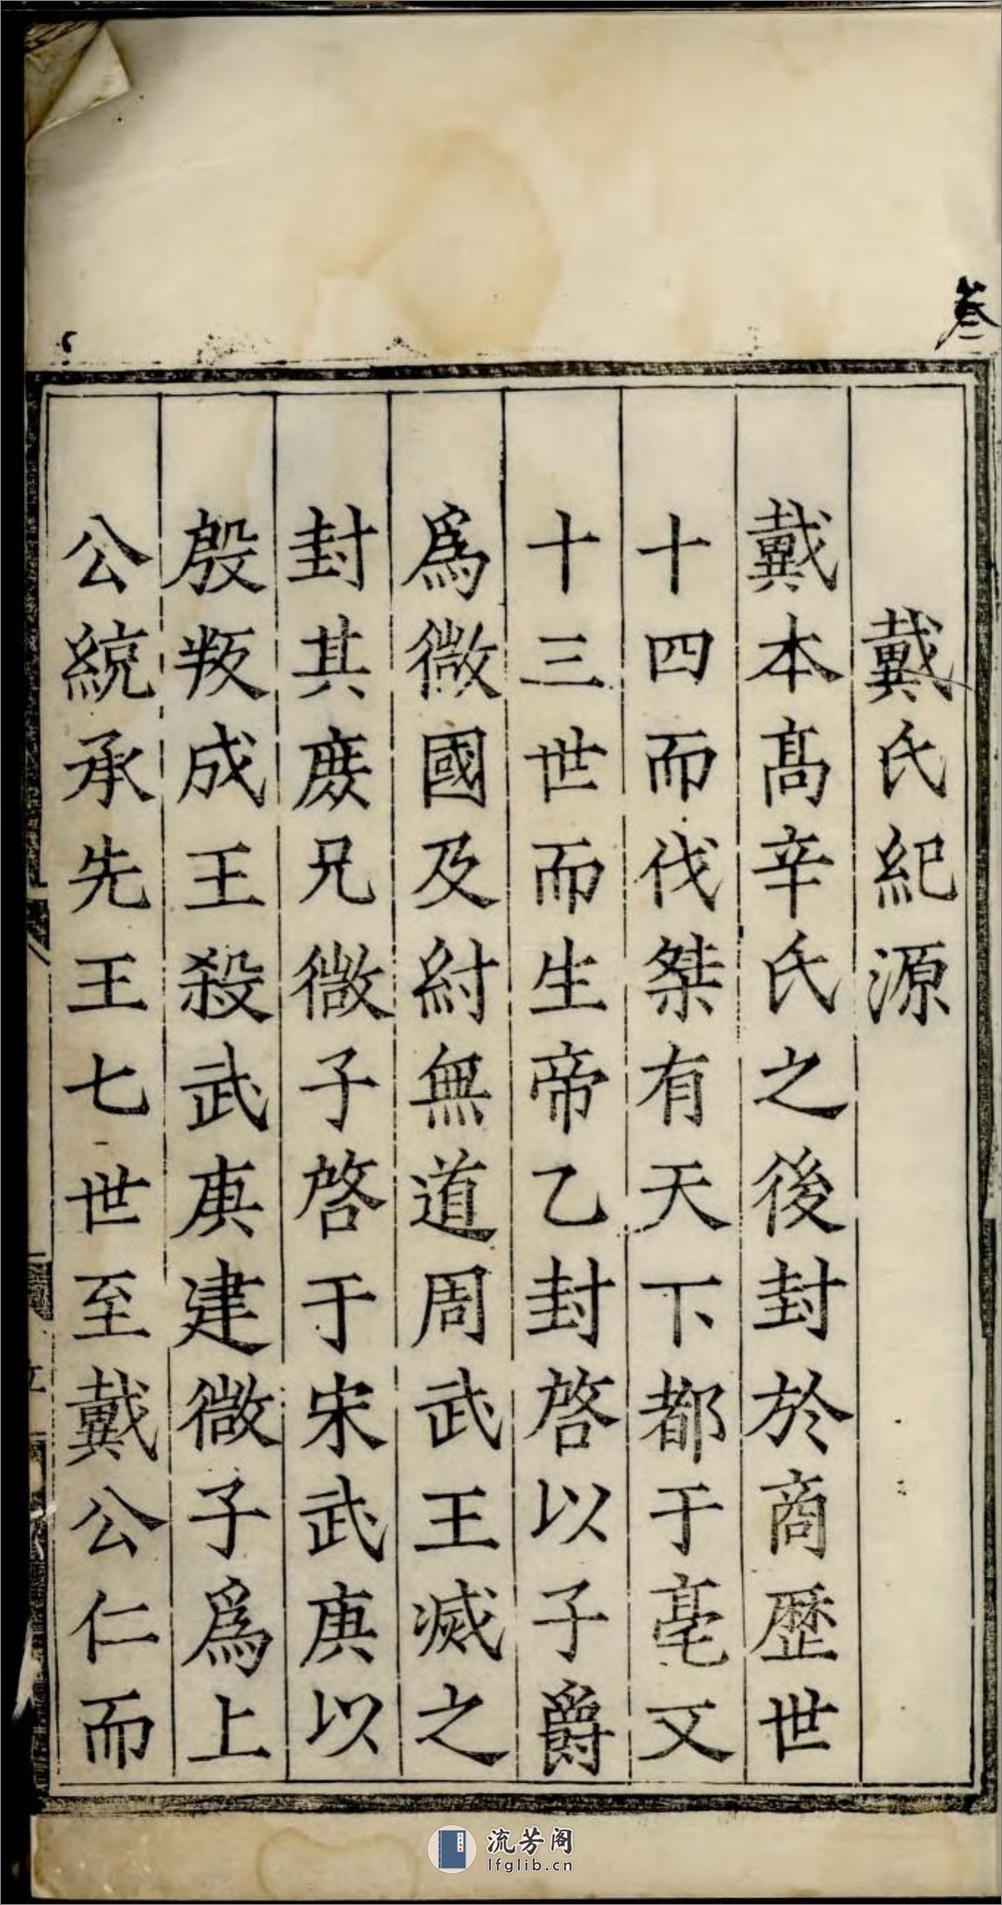 卷二
戴氏紀源
戴本髙辛氏之後封於商歷世
十四而伐桀有天下都于亳又
十三世而生帝乙封啓以子爵
爲微國及紂無道周武王滅之
封其庻兄微子啓于宋武庚以
殷叛成王殺武庚建微子爲上
公統承先王七世至戴公仁而
流芳阁
lfglib.cn